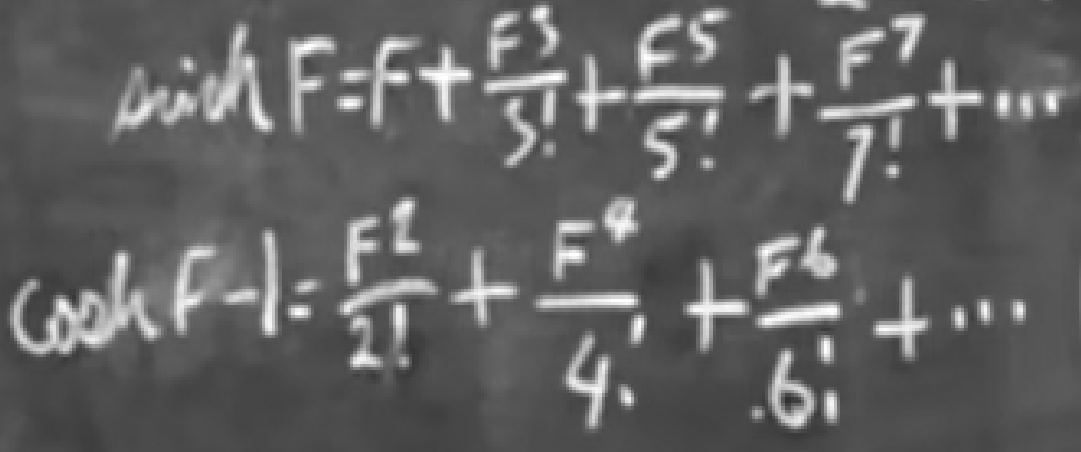 sinh F = F + F³/3! + F⁵/5! + F⁷/7! + ...
cosh F - 1 = F²/2! + F⁴/4! + F⁶/6! + ...